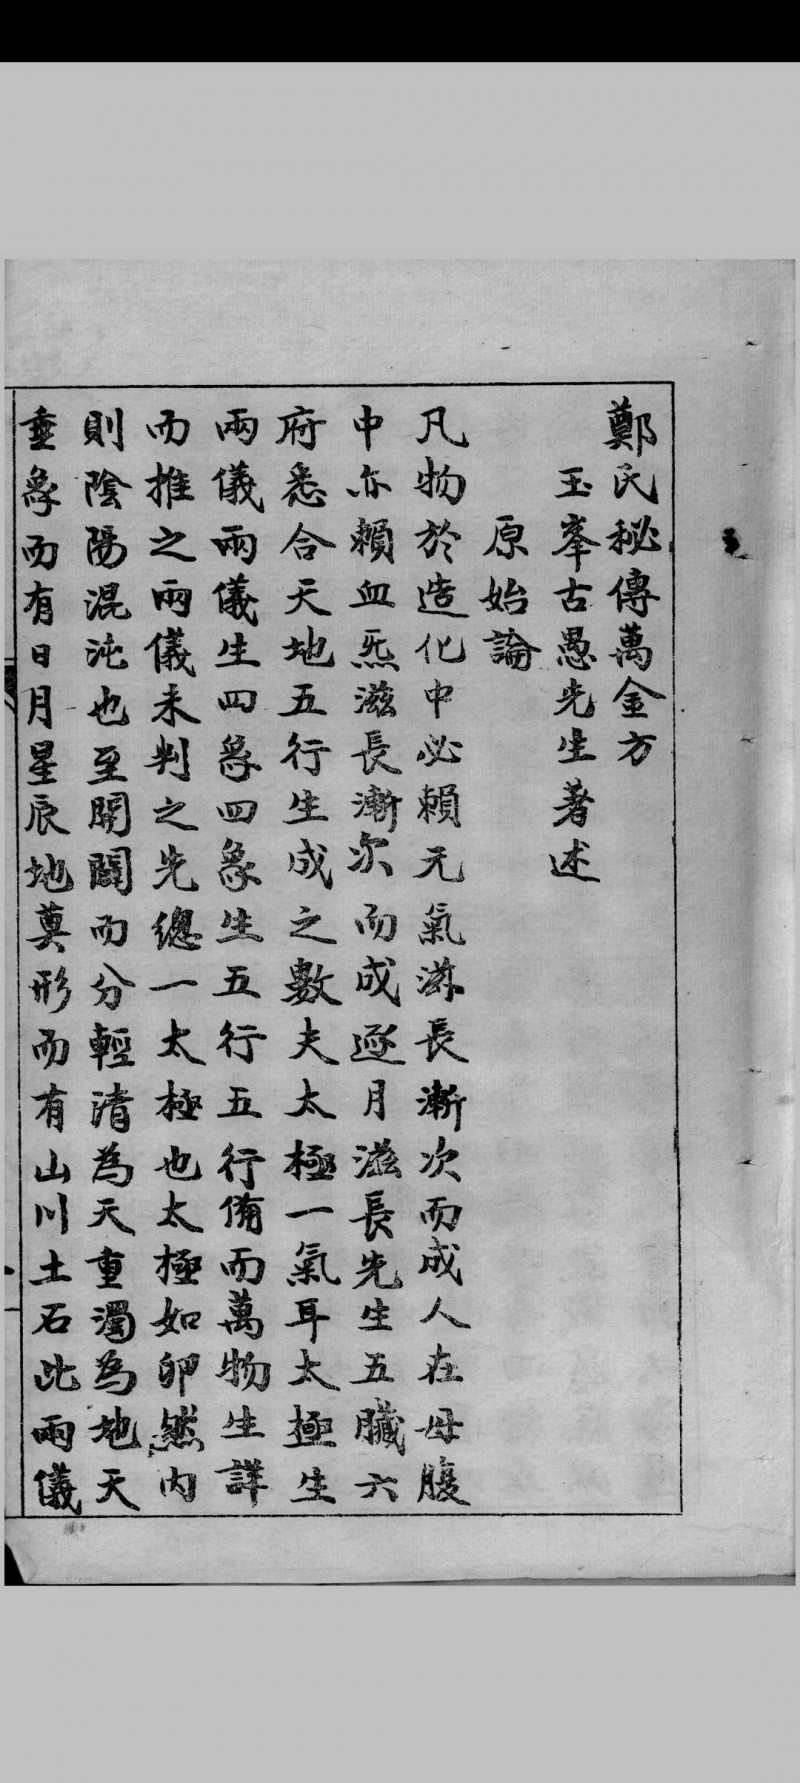 鄭氏秘傳萬金方
玉峯古愚先生著述
原始論
凡物於造化中必賴元氣滋長漸次而成人在母腹
中亦賴血炁滋長漸次而成逐月滋長先生五臟六
府悉合天地五行生成之數夫太極一氣耳太極生
兩儀兩儀生四象四象生五行五行備而萬物生詳
而推之兩儀未判之先總一太極也太極如卵然內
則陰陽混沌也至開闢而分輕清為天重濁為地天
垂象而有日月星辰地奠形而有山川土石此兩儀